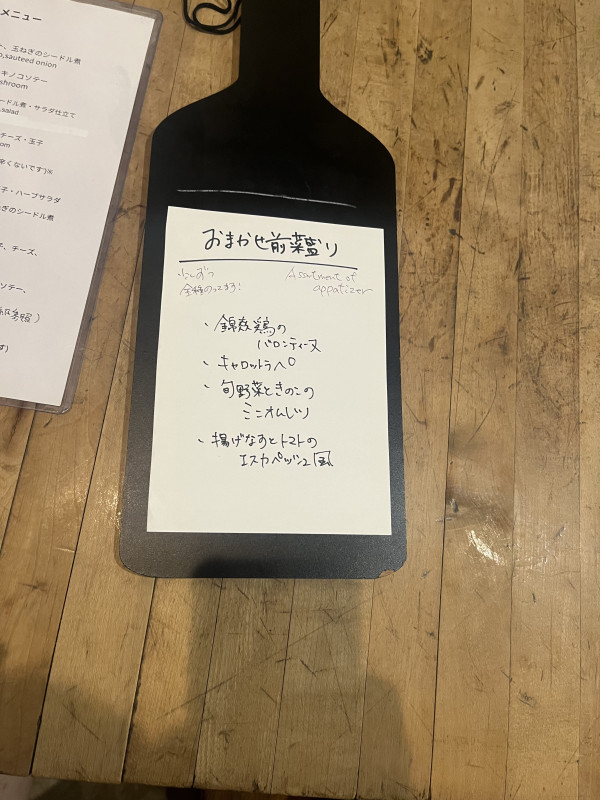 メニュー
、玉ねぎのシードル煮
,sauteed onion
キノコソテー
shroom
ードル煮・サラダ仕立て
salad
チーズ・玉子
om
辛くないです)※
子・ハーブサラダ
ねぎのシードル煮
子、チーズ、
ソテー、
おまかせ前菜盛り
少しずつ
全種のってます!
Assortment of
appatizer
・錦爽鶏の
バロンティーヌ
・キャロットラペ
・旬野菜ときのこの
ミニオムレツ
・揚げなすとトマトの
エスカベッシュ風